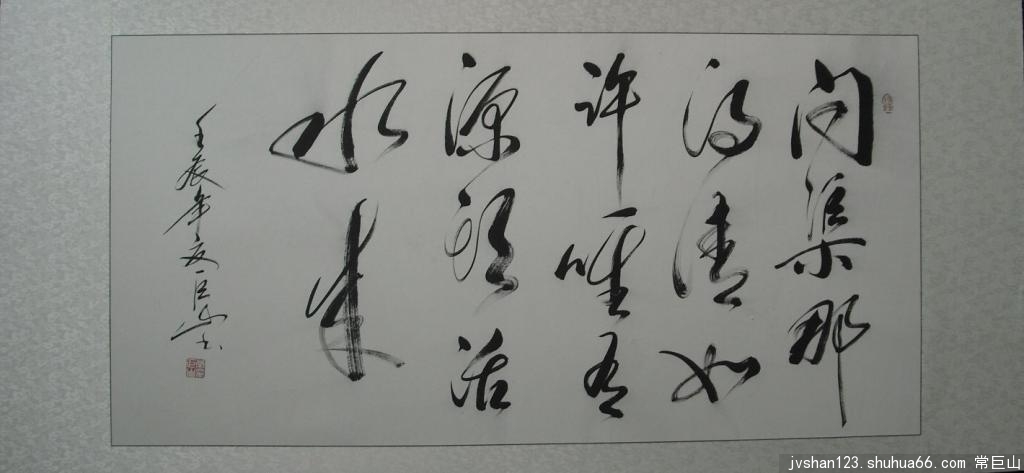 问渠那
得清如
许唯有
源头活
水来
壬辰年夏巨山书
jvshan123.shuhua66.com 常巨山